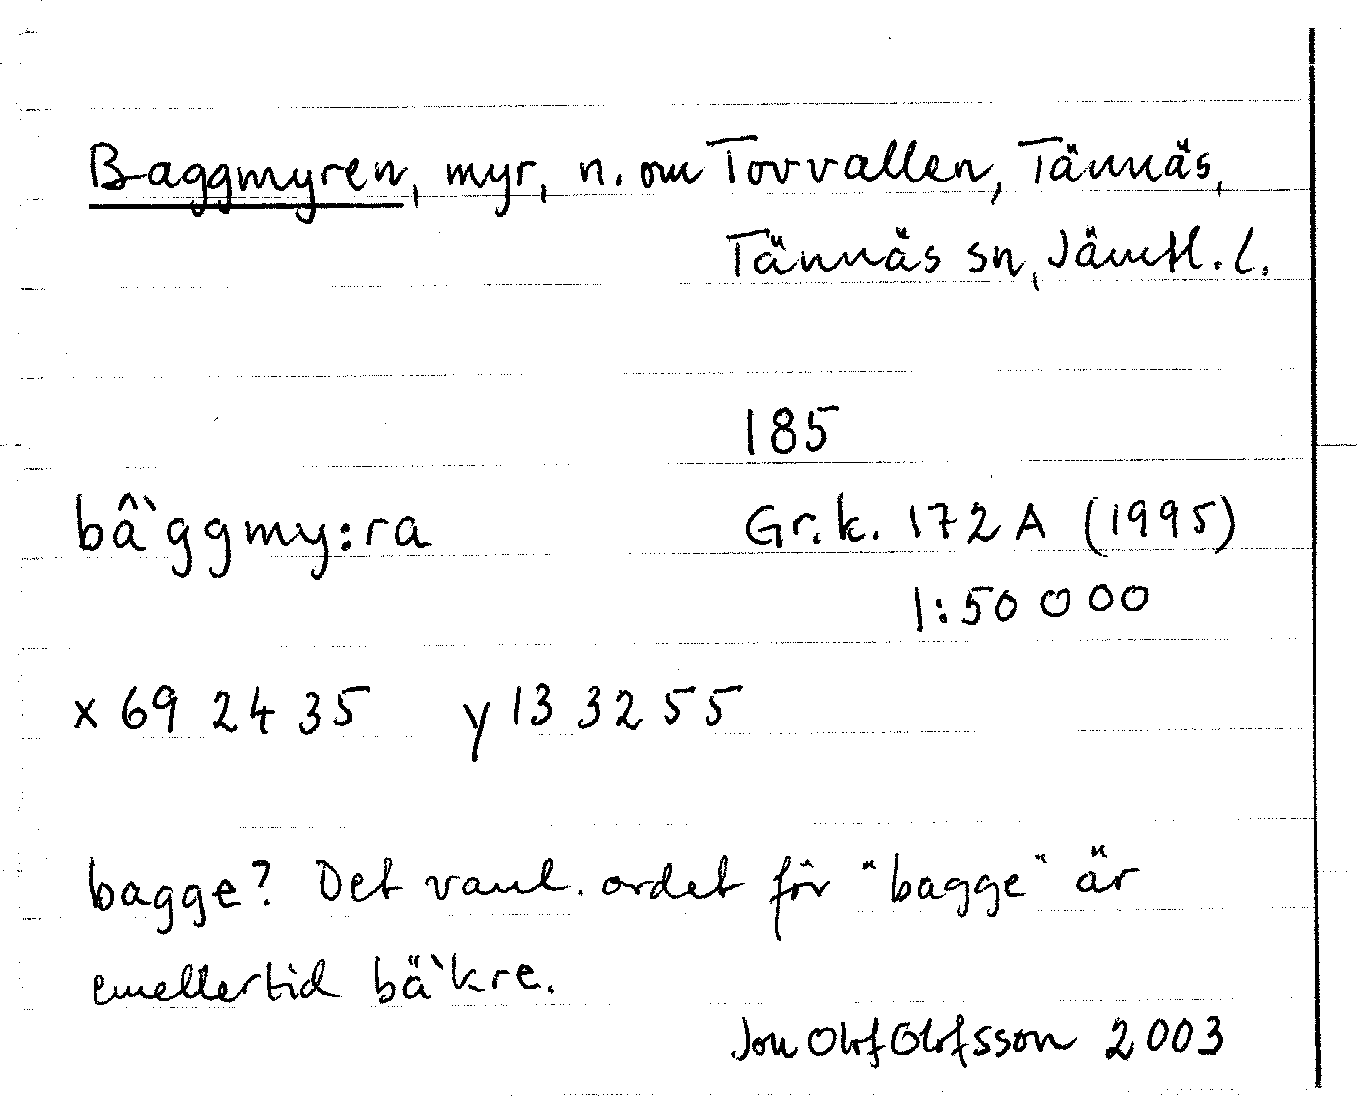 Baggmyren, myr, n. om Torvallen, Tännäs,
Tännäs sn, Jämtl. l.
185
bâ`ggmy:ra Gr.k. 172 A (1995)
1:50 000
x 69 24 35 y 13 32 55
bagge? Det vanl. ordet för "bagge" är
emellertid bä`kre.
Jon Olof Olofsson 2003